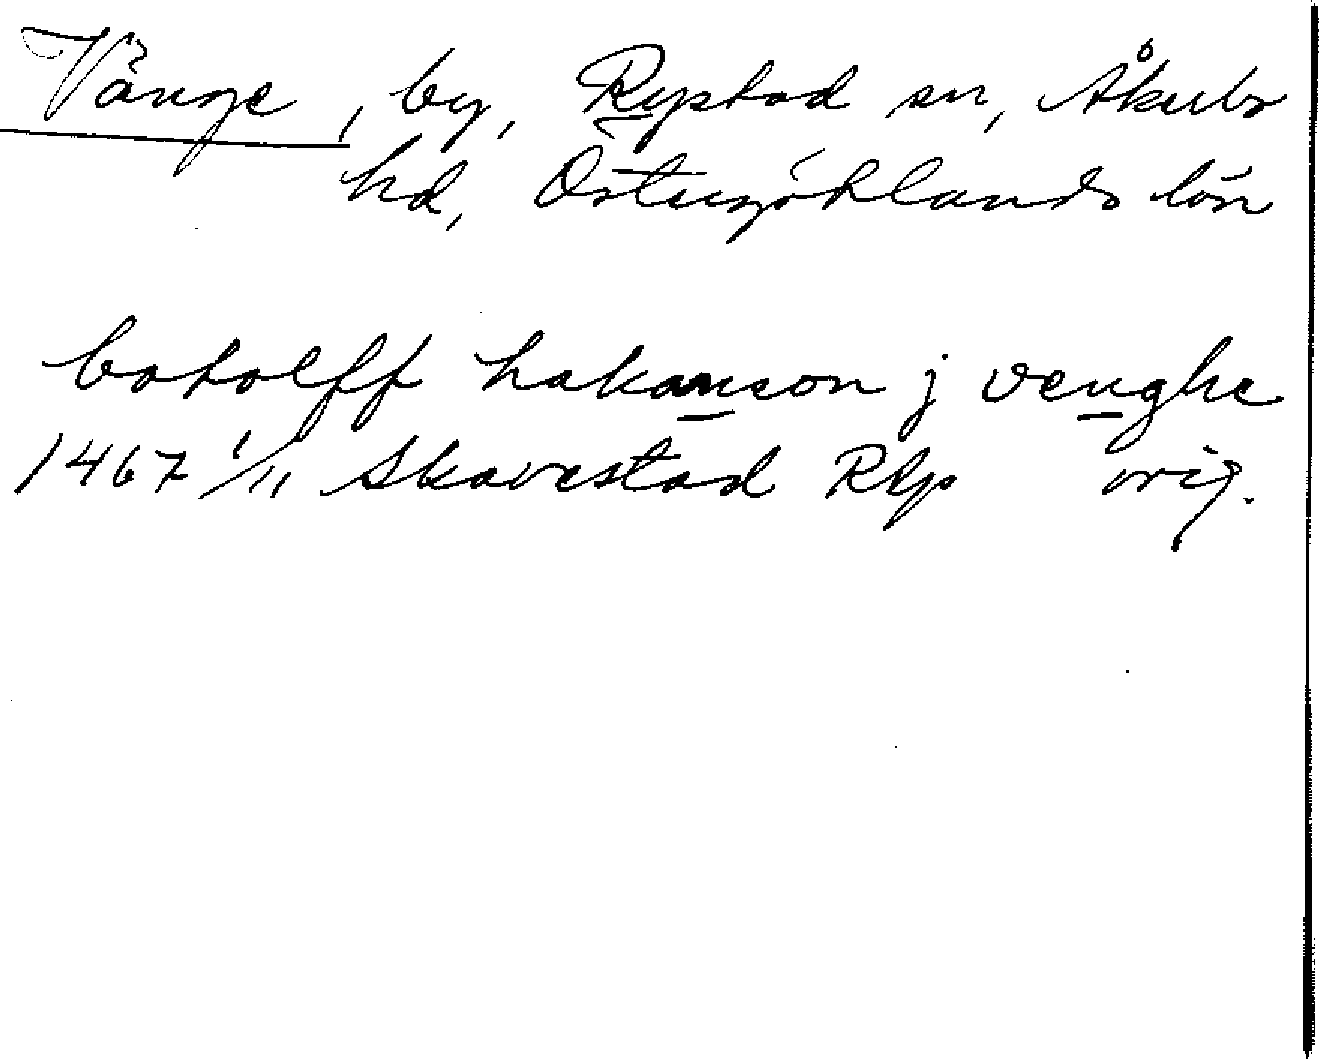 Vänge, by, Rystad sn, Åkerbo
hd, Östergötlands län
botolff hakanson j venghe
1467 1/11 Skavestad Rlp orig.